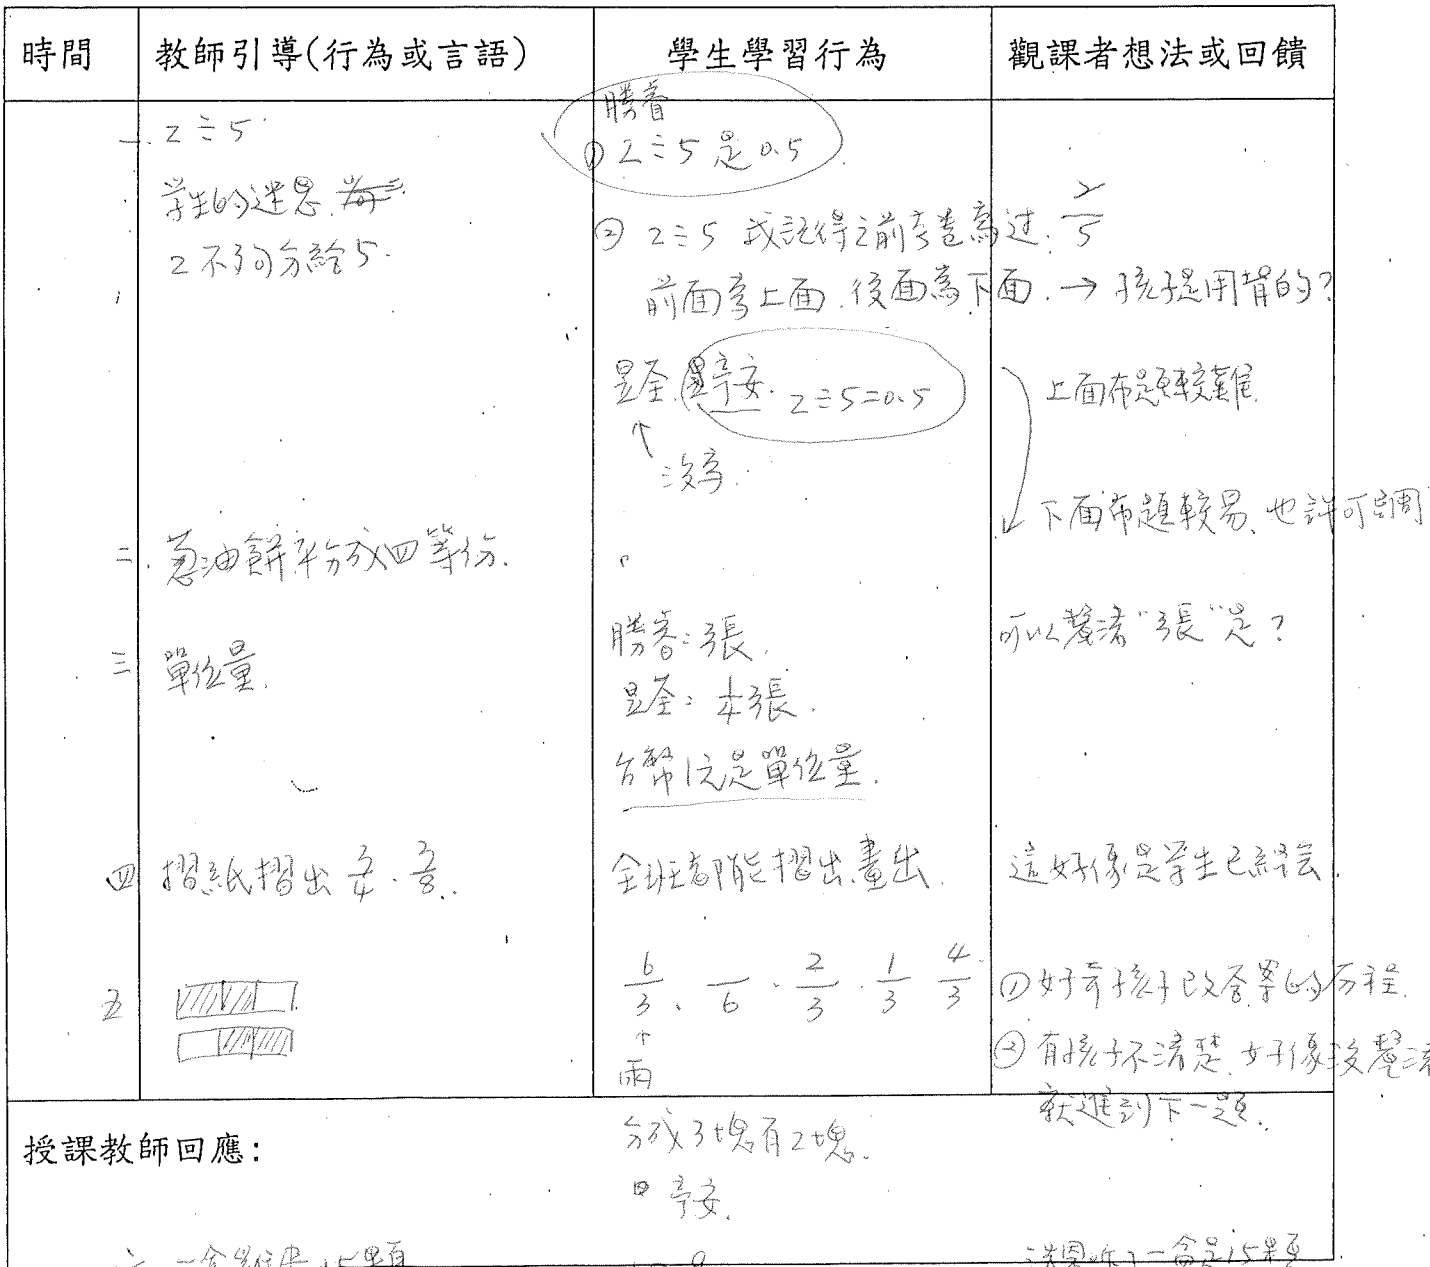 時間 教師引導(行為或言語) 學生學習行為 觀課者想法或回饋
一. 2÷5
学生的迷思.
2不夠分給5.
勝睿
① 2÷5 是 0.5
② 2÷5 我記得之前考卷寫过. 2/5
前面寫上面.後面寫下面. → 孩子是用背的?
昱荃. 亭安. 2÷5=0.5
↑
沒寫.
上面布題較難.
下面布題較易、也許可調
二. 蔥油餅平分成四等份.
三 單位量.
勝睿:張.
昱荃: 1/4張.
台幣1元是單位量.
可以釐清"張"是?
四 摺紙摺出 3/4 . 3/8.
全班都能摺出.畫出.
這好像是学生已經会.
五
6/3 、 /6 . 2/3 . 1/3 4/3
↑
雨
① 好奇孩子改答案的历程.
② 有孩子不清楚.好像沒釐清
就進到下一題.
授課教師回應:
分成3塊有2塊.
亭安.
一盒是15顆